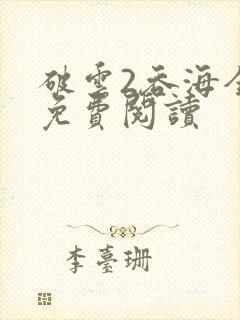 破雲2吞海全
免費閱讀
李臺珊